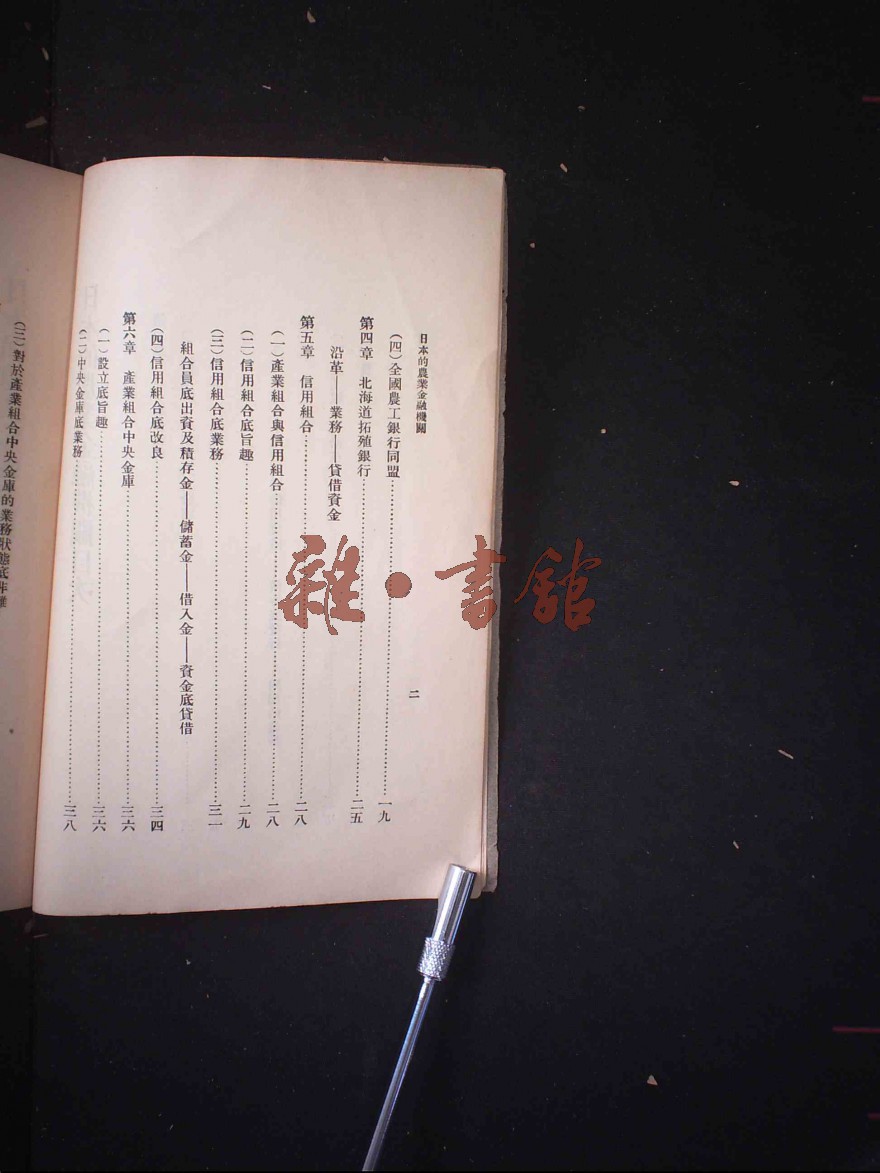 日本的農業金融機關
二
(四)全國農工銀行同盟……一九
第四章 北海道拓殖銀行……二五
沿革——業務——貸借資金
第五章 信用組合……二八
(一)產業組合與信用組合……二八
(二)信用組合底旨趣……二九
(三)信用組合底業務……三一
組合員底出資及積存金——儲蓄金——借入金——資金底貸借
(四)信用組合底改良……三四
第六章 產業組合中央金庫……三六
(一)設立底旨趣……三六
(二)中央金庫底業務……三八
(三)對於產業組合中央金庫的業務狀態底非難
雜·書館